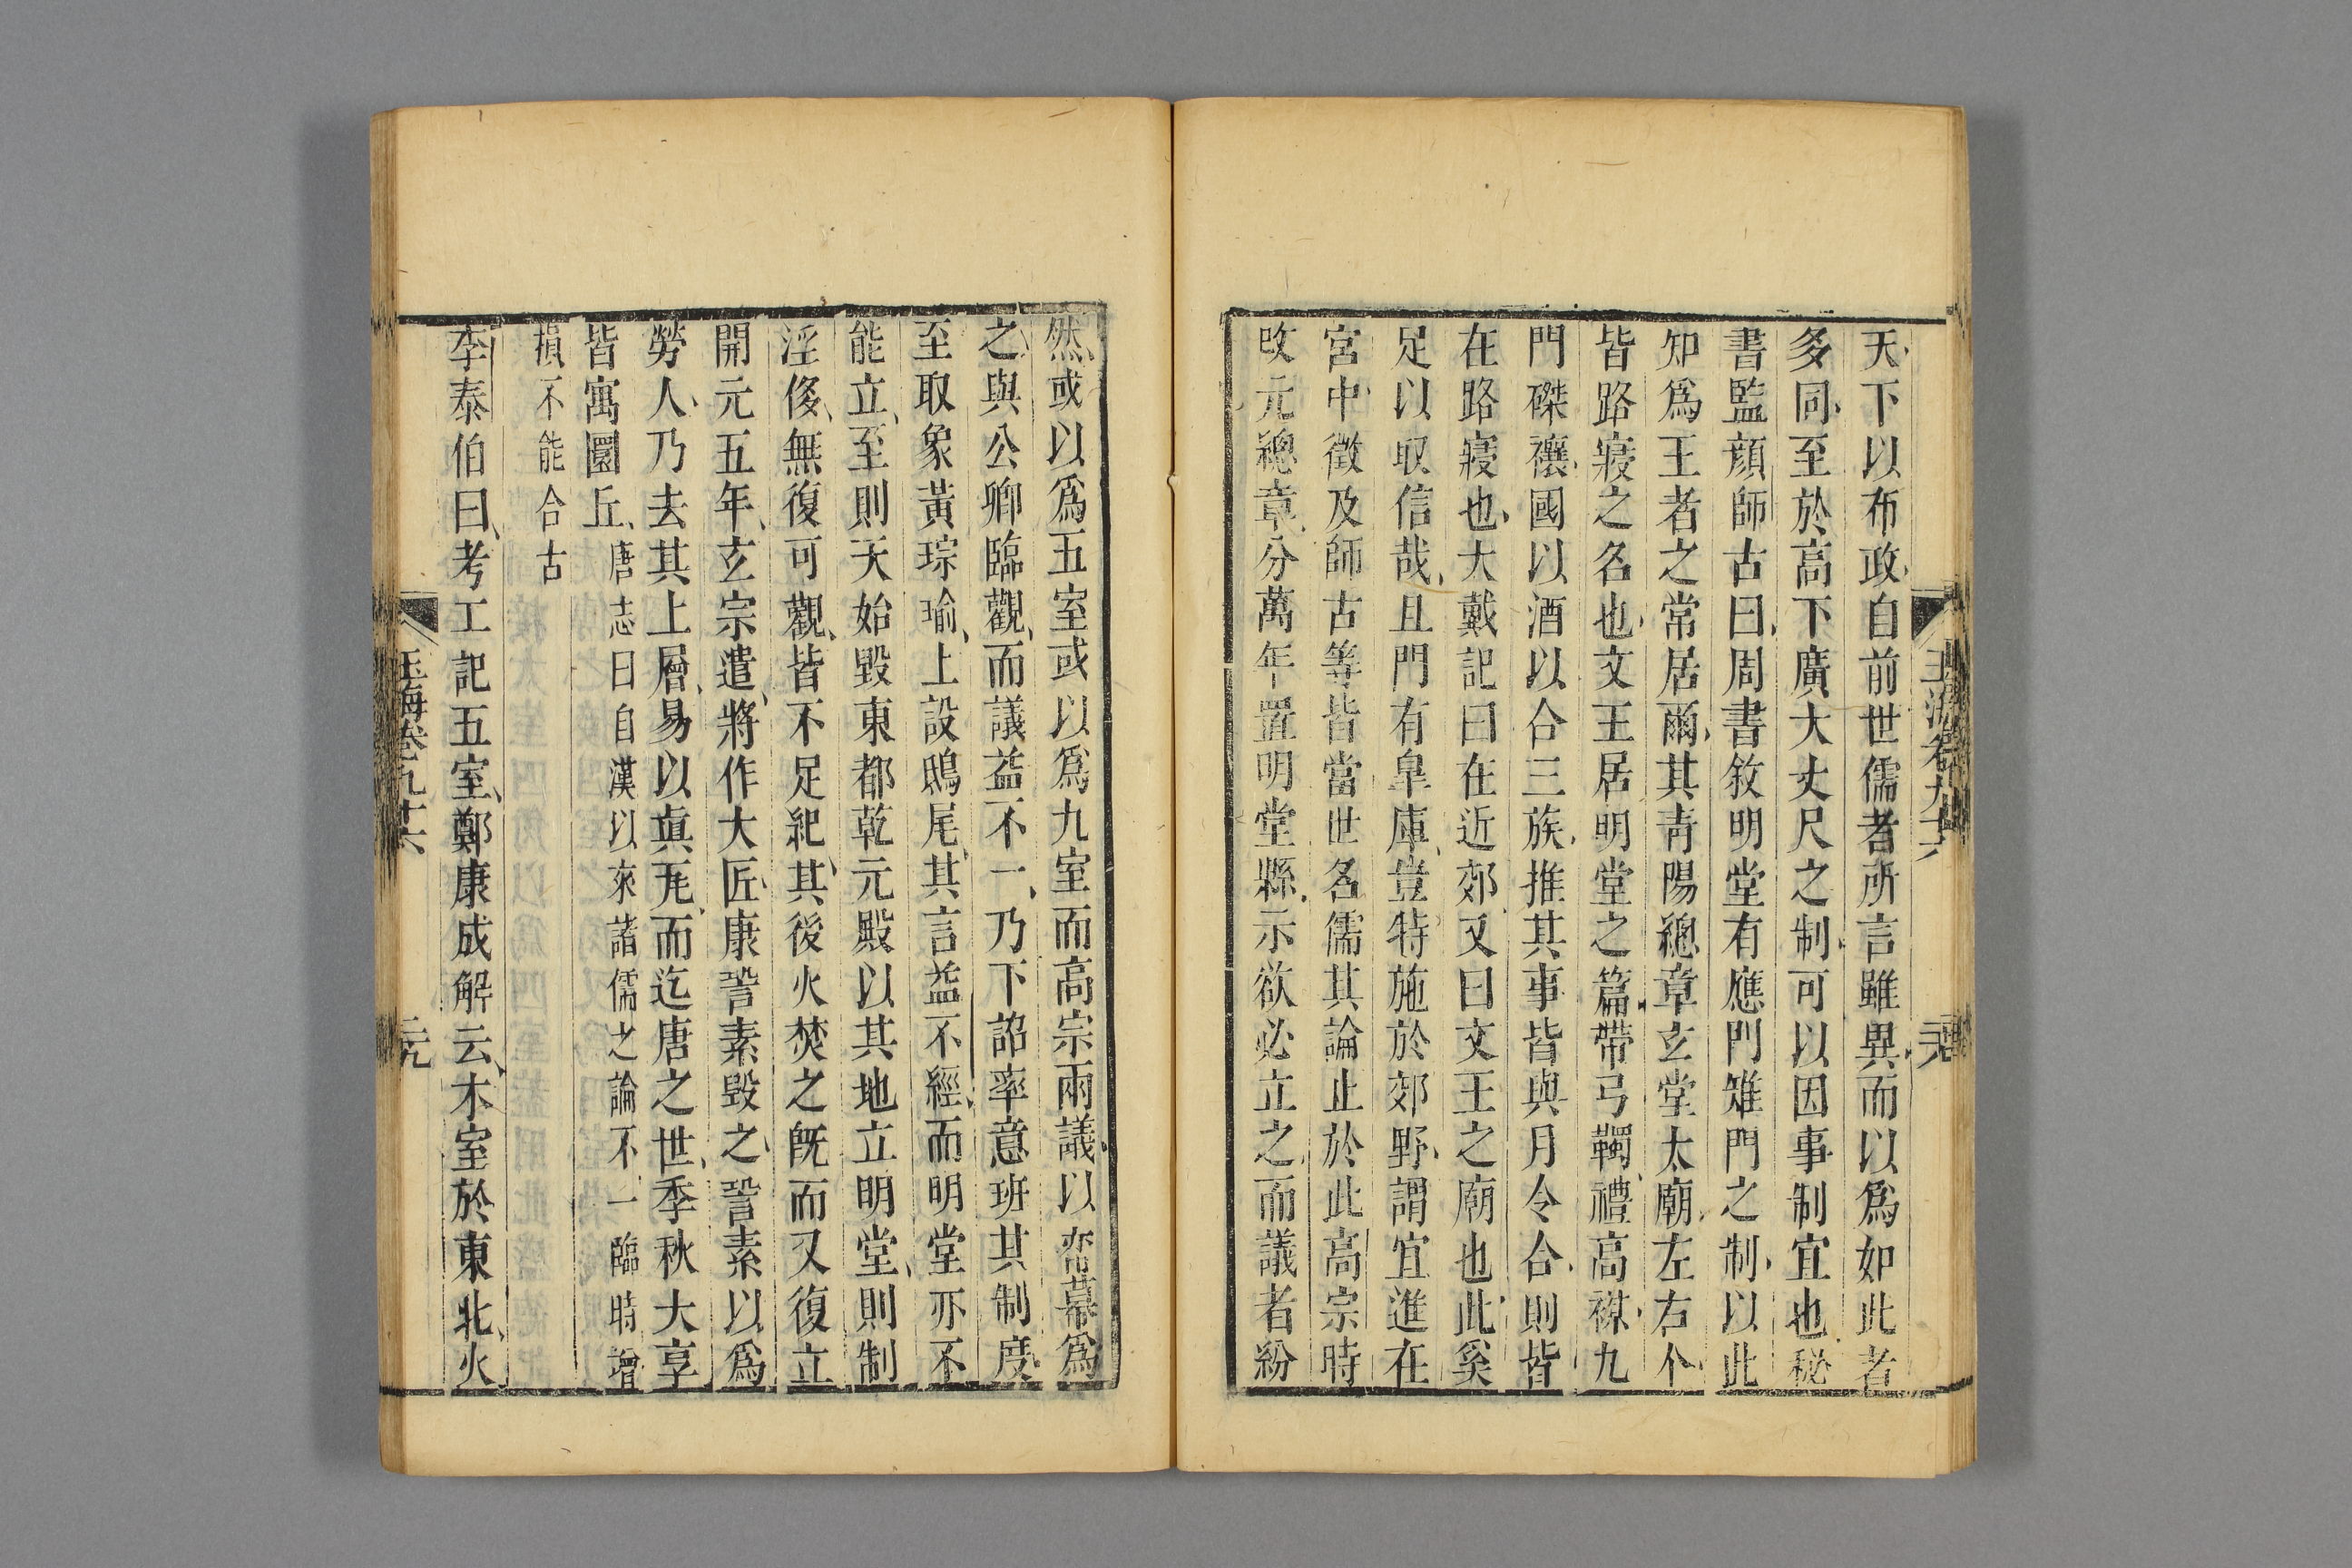 天下以布政自前世儒者所言雖異而以爲如此者
多同至於高下廣大丈尺之制可以因事制宜也秘
書監顔師古曰周書敘明堂有應門雉門之制以此
知爲王者之常居爾其青陽總章玄堂太廟左右个
皆路寢之名也文王居明堂之篇帶弓韣禮高禖九
門磔禳國以酒以合三族推其事皆與月令合則皆
在路寢也大戴記曰在近郊又曰文王之廟也此奚
足以取信哉且門有皐庫豈特施於郊野謂宜進在
宮中徵及師古等皆當世名儒其論止於此高宗時
改元總章分萬年置明堂縣示欲必立之而議者紛
然或以爲五室或以爲九室而高宗兩議以帟幕爲
之與公卿臨觀而議益不一乃下詔率意班其制度
至取象黃琮瑜上設鴟尾其言益不經而明堂亦不
能立至則天始毀東都乾元殿以其地立明堂則制
淫侈無復可觀皆不足紀其後火焚之旣而又復立
開元五年玄宗遣將作大匠康䛒素毀之䛒素以爲
勞人乃去其上層易以眞瓦而迄唐之世季秋大享
皆寓圜丘唐志曰自漢以來諸儒之論不一臨時增
損不能合古
李泰伯曰考工記五室鄭康成解云木室於東北火
玉海卷九十六